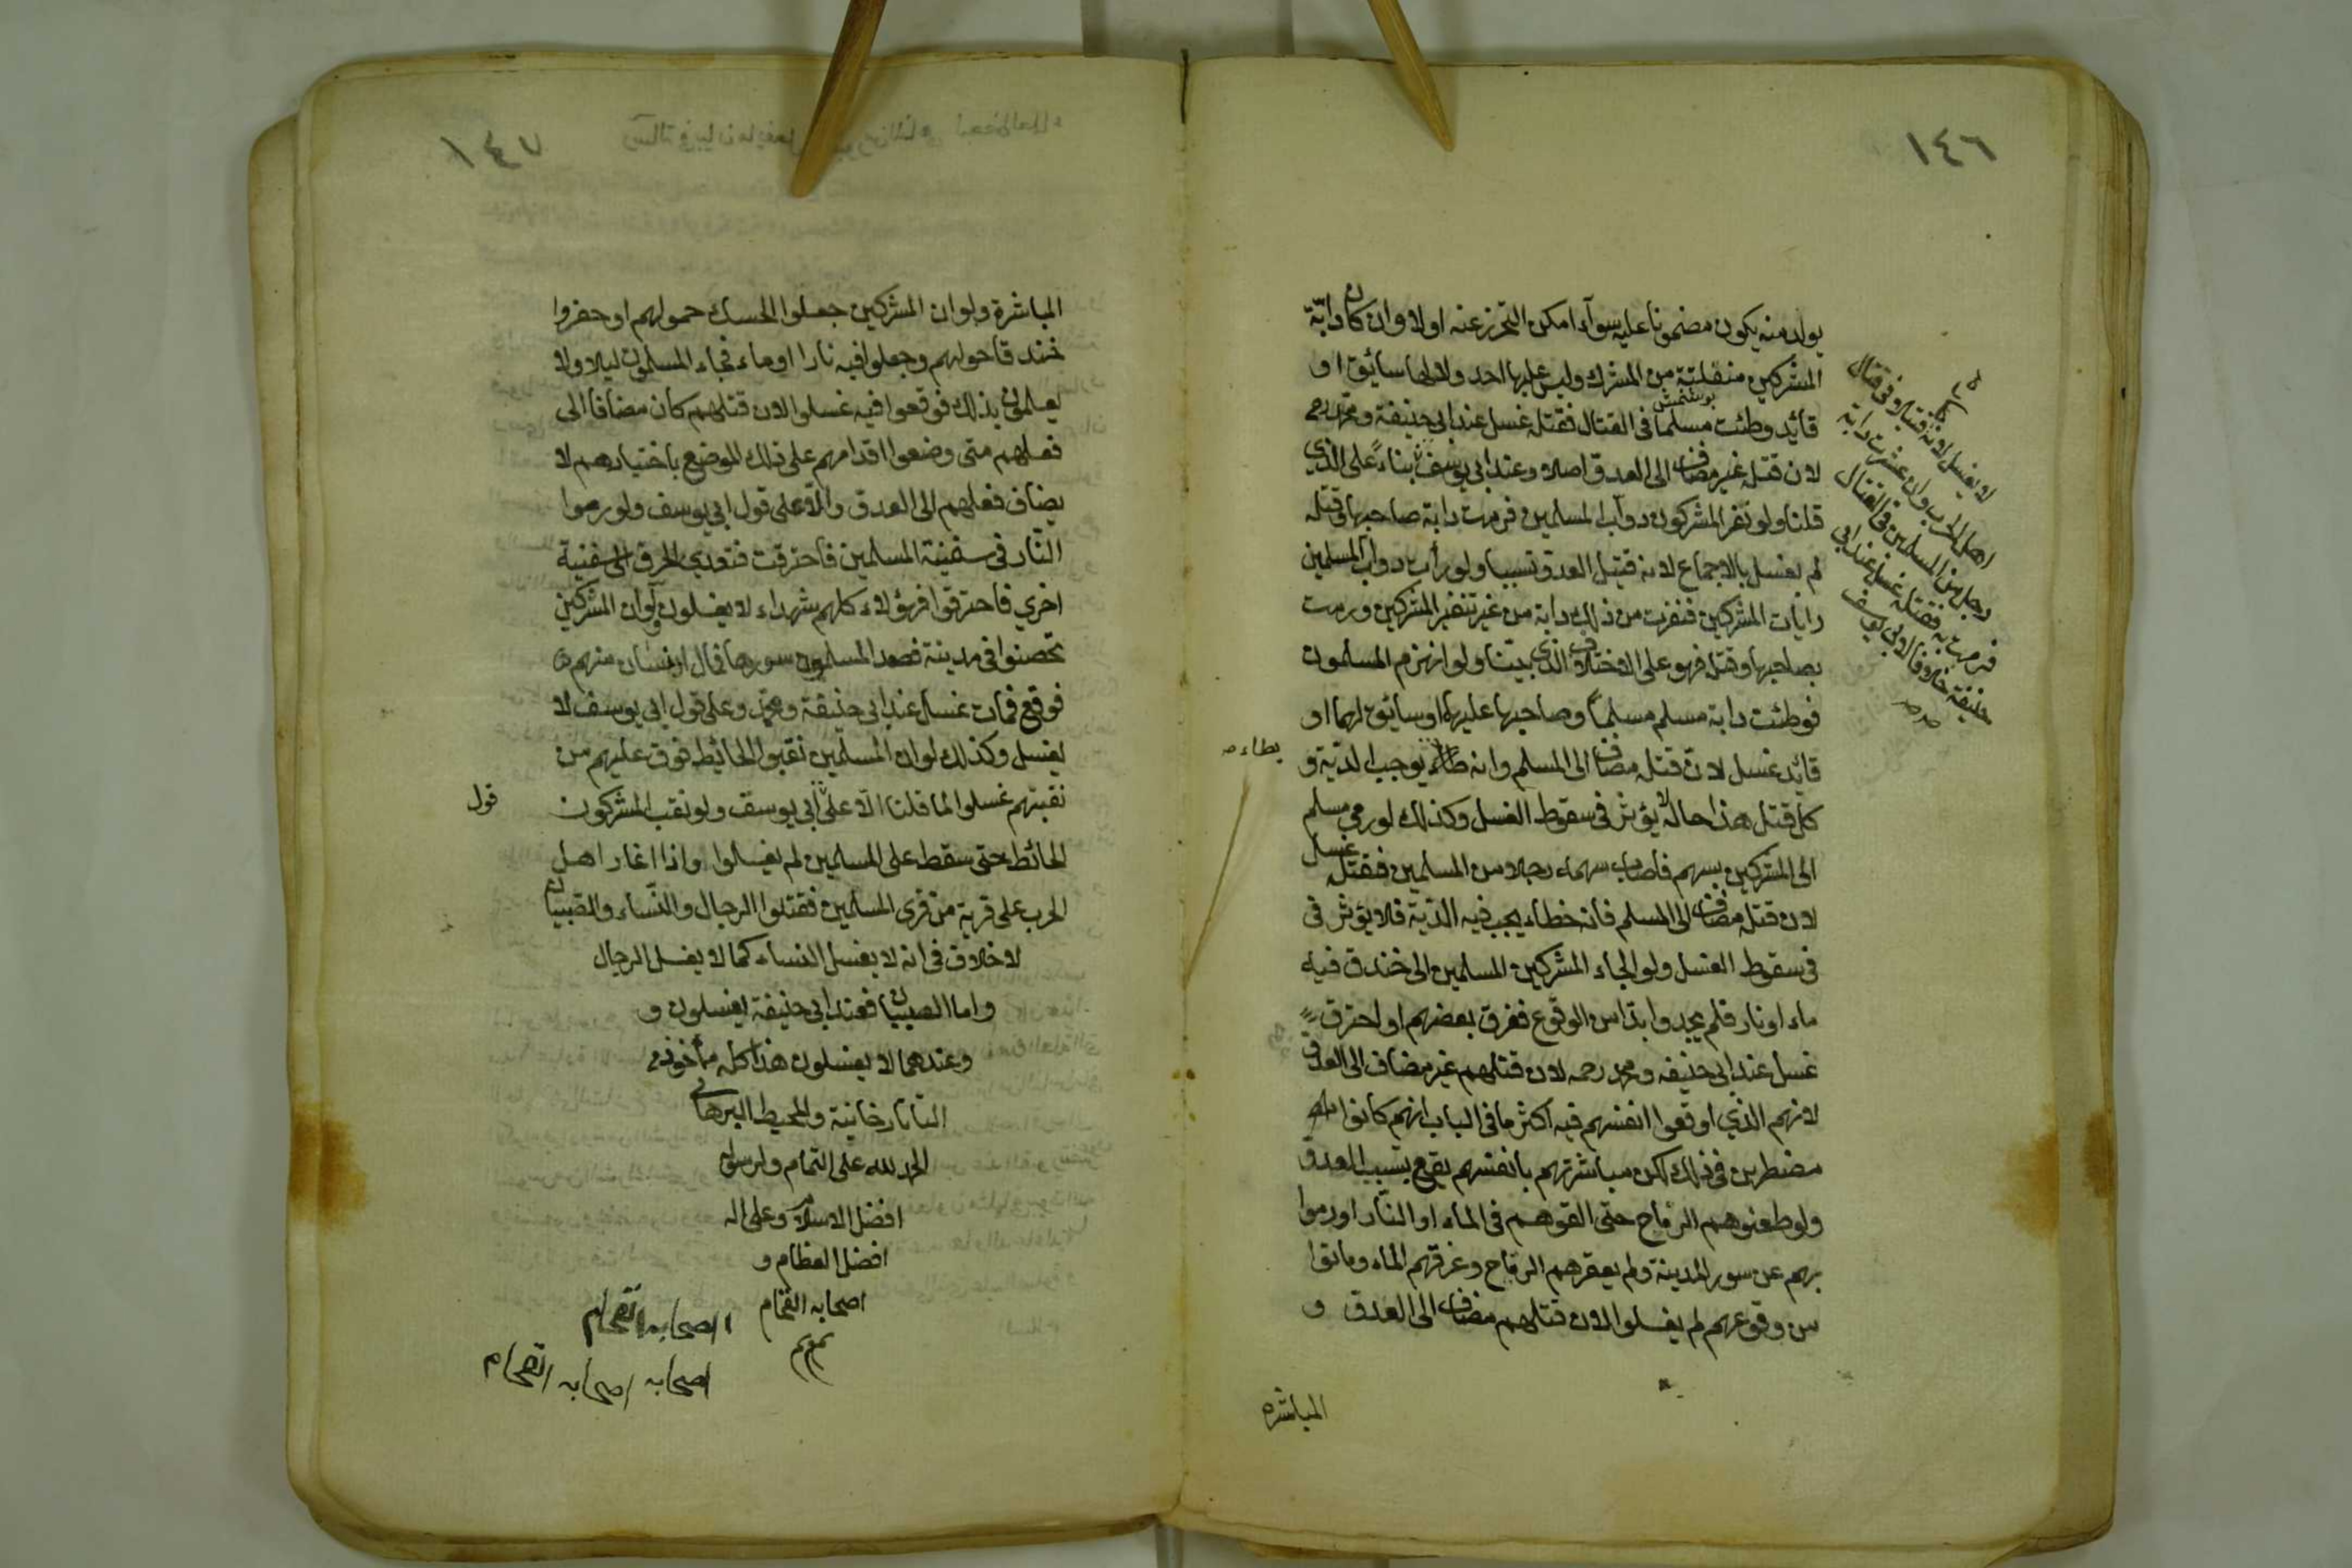 ١٤٦
يولد منه يكون مضمونا عليه سوآء امكن التحرز عنه اولا وان كان دابّة
المشركين منفلتة من المشرك وليس عليها احد ولا لها سائق او
قائد وطئت مسلما فى القتال فقتله غسل عند ابى حنيفة ومحمد رحمه
لان قتله غير مضاف الى العدو اصلا وعند ابى يوسف بناءً على الذي
قلنا ولو نفر المشركون دوآب المسلمين فرمت دابة صاحبها وقتله
لم يغسل بالاجماع لانه قتيل العدو تسبيبا ولو رأت دوآب المسلمين
رايات المشركين فنفرت من ذلك دابة من غير تنفير المشركين ورمت
بصاحبها وقتل فهو على الاختلاف الذي بيننا ولو انهزم المسلمون
فوطئت دابة مسلم مسلماً وصاحبها عليها او سائق لها او
قائد غسل لان قتله مضاف الى المسلم وانه يوجب الدّية و
كل قتل هذا حاله لا يؤثر فى سقوط الغسل وكذلك لو رمى مسلم
الى المشركين بسهم فاصاب سهمه رجلا من المسلمين فقتله غسل
لان قتله مضاف الى المسلم فانه خطاء يجب فيه الدّية فلا يؤثر فى
فى سقوط الغسل ولو الجاء المشركين المسلمين الى خندق فيه
ماء او نار فلم يجدوا بدّا من الوقوع فغرق بعضهم او احترق
غسل عند ابى حنيفه ومحمد رحمه لان قتلهم غير مضاف الى العدو
لانهم الذي اوقعوا انفسهم فيه اكثر ما فى الباب انهم كانوا
مضطرين فى ذلك لكن مباشرتهم بانفسهم يقع بتسبيب العدو
ولو طعنوهم الرماح حتى القوهم فى الماء او النّار او رموا
بهم عن سور المدينة ولم يعقرهم الرماح وغرقهم الماء وماتوا
من وقوعهم لم يغسلوا لان قتلهم مضاف الى العدو و
المباشره
لا يغسل لانه قتيل فى قتال
اهل الحرب وان عثرت دابة
رجل من المسلمين فى القتال
فرمت به فقتله غسل عند ابى
حنيفة خلافا لابى يوسف
١٤٧
المباشرة ولو ان المشركين جعلوا الحسك حولهم او حفروا
خندقا حولهم وجعلوا فيه نارا او ماء فجاء المسلمون ليلا ولا
يعلمون بذلك فوقعوا فيه غسلوا لان قتلهم كان مضافا الى
فعلهم متى وضعوا اقدامهم على ذلك الموضع باختيارهم لا
يضاف فعلهم الى العدو والّا على قول ابى يوسف ولو رموا
النّار فى سفينة المسلمين فاحترقت فتعدي الحرق الى سفينة
اخري فاحترقوا فهؤلاء كلهم شهداء لا يغسلون ولو ان المشركين
تحصنوا فى مدينة فصعد المسلمون سورها فمال انسان منهم
فوقع فمات غسل عند ابى حنيفة ومحمد وعلى قول ابى يوسف لا
يغسل وكذلك لو ان المسلمين نقبوا الحائط فوقع عليهم من
نقبتهم غسلوا لما قلنا الّا على ابى يوسف ولو نقب المشركون
قول
الحائط حتى سقط على المسلمين لم يغسلوا واذا اغار اهل
الحرب على قرية من قرى المسلمين فقتلوا الرجال والنّساء والصبيان
لا خلاف فى انه لا يغسل النساء كما لا يغسل الرجال
واما الصبيان فعند ابى حنيفة يغسلون و
وعندهما لا يغسلون هذا كله مأخوذ
التاتارخانية والمحيط البرهانى
الحمد لله على التمام ولرسوله
افضل السلام وعلى اله
افضل العظام و
اصحابه الفخام
تم تم
اصحابه الفخام
اصحابه اصحابه الفخام